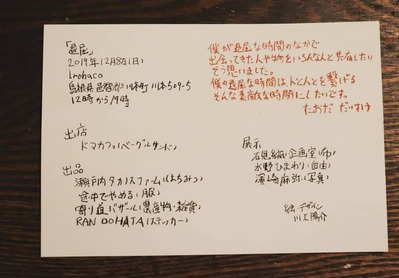 「退屈」
2019年12月8日(日)
Inohaco
島根県邑智郡川本町川本509-5
12時から19時
出店
ドマカフェ(ベーグルサンド)
出品
瀬戸内タカノスファーム(はちみつ)
途中でやめる(服)
寄り道バザール(農産物・雑貨)
RAN DOHATA(ステッカー)
僕が退屈な時間のなかで
出会ってきた人や物をいろんな人と共有したい
そう思いました。
僕の退屈な時間は人と人とを繋げる
そんな素敵な時間にしたいです。
たおだ だいすけ
展示
企画室(布)
水野ひまわり(自由)
濱崎麻弥(写真)
絵・デザイン
川上陽介